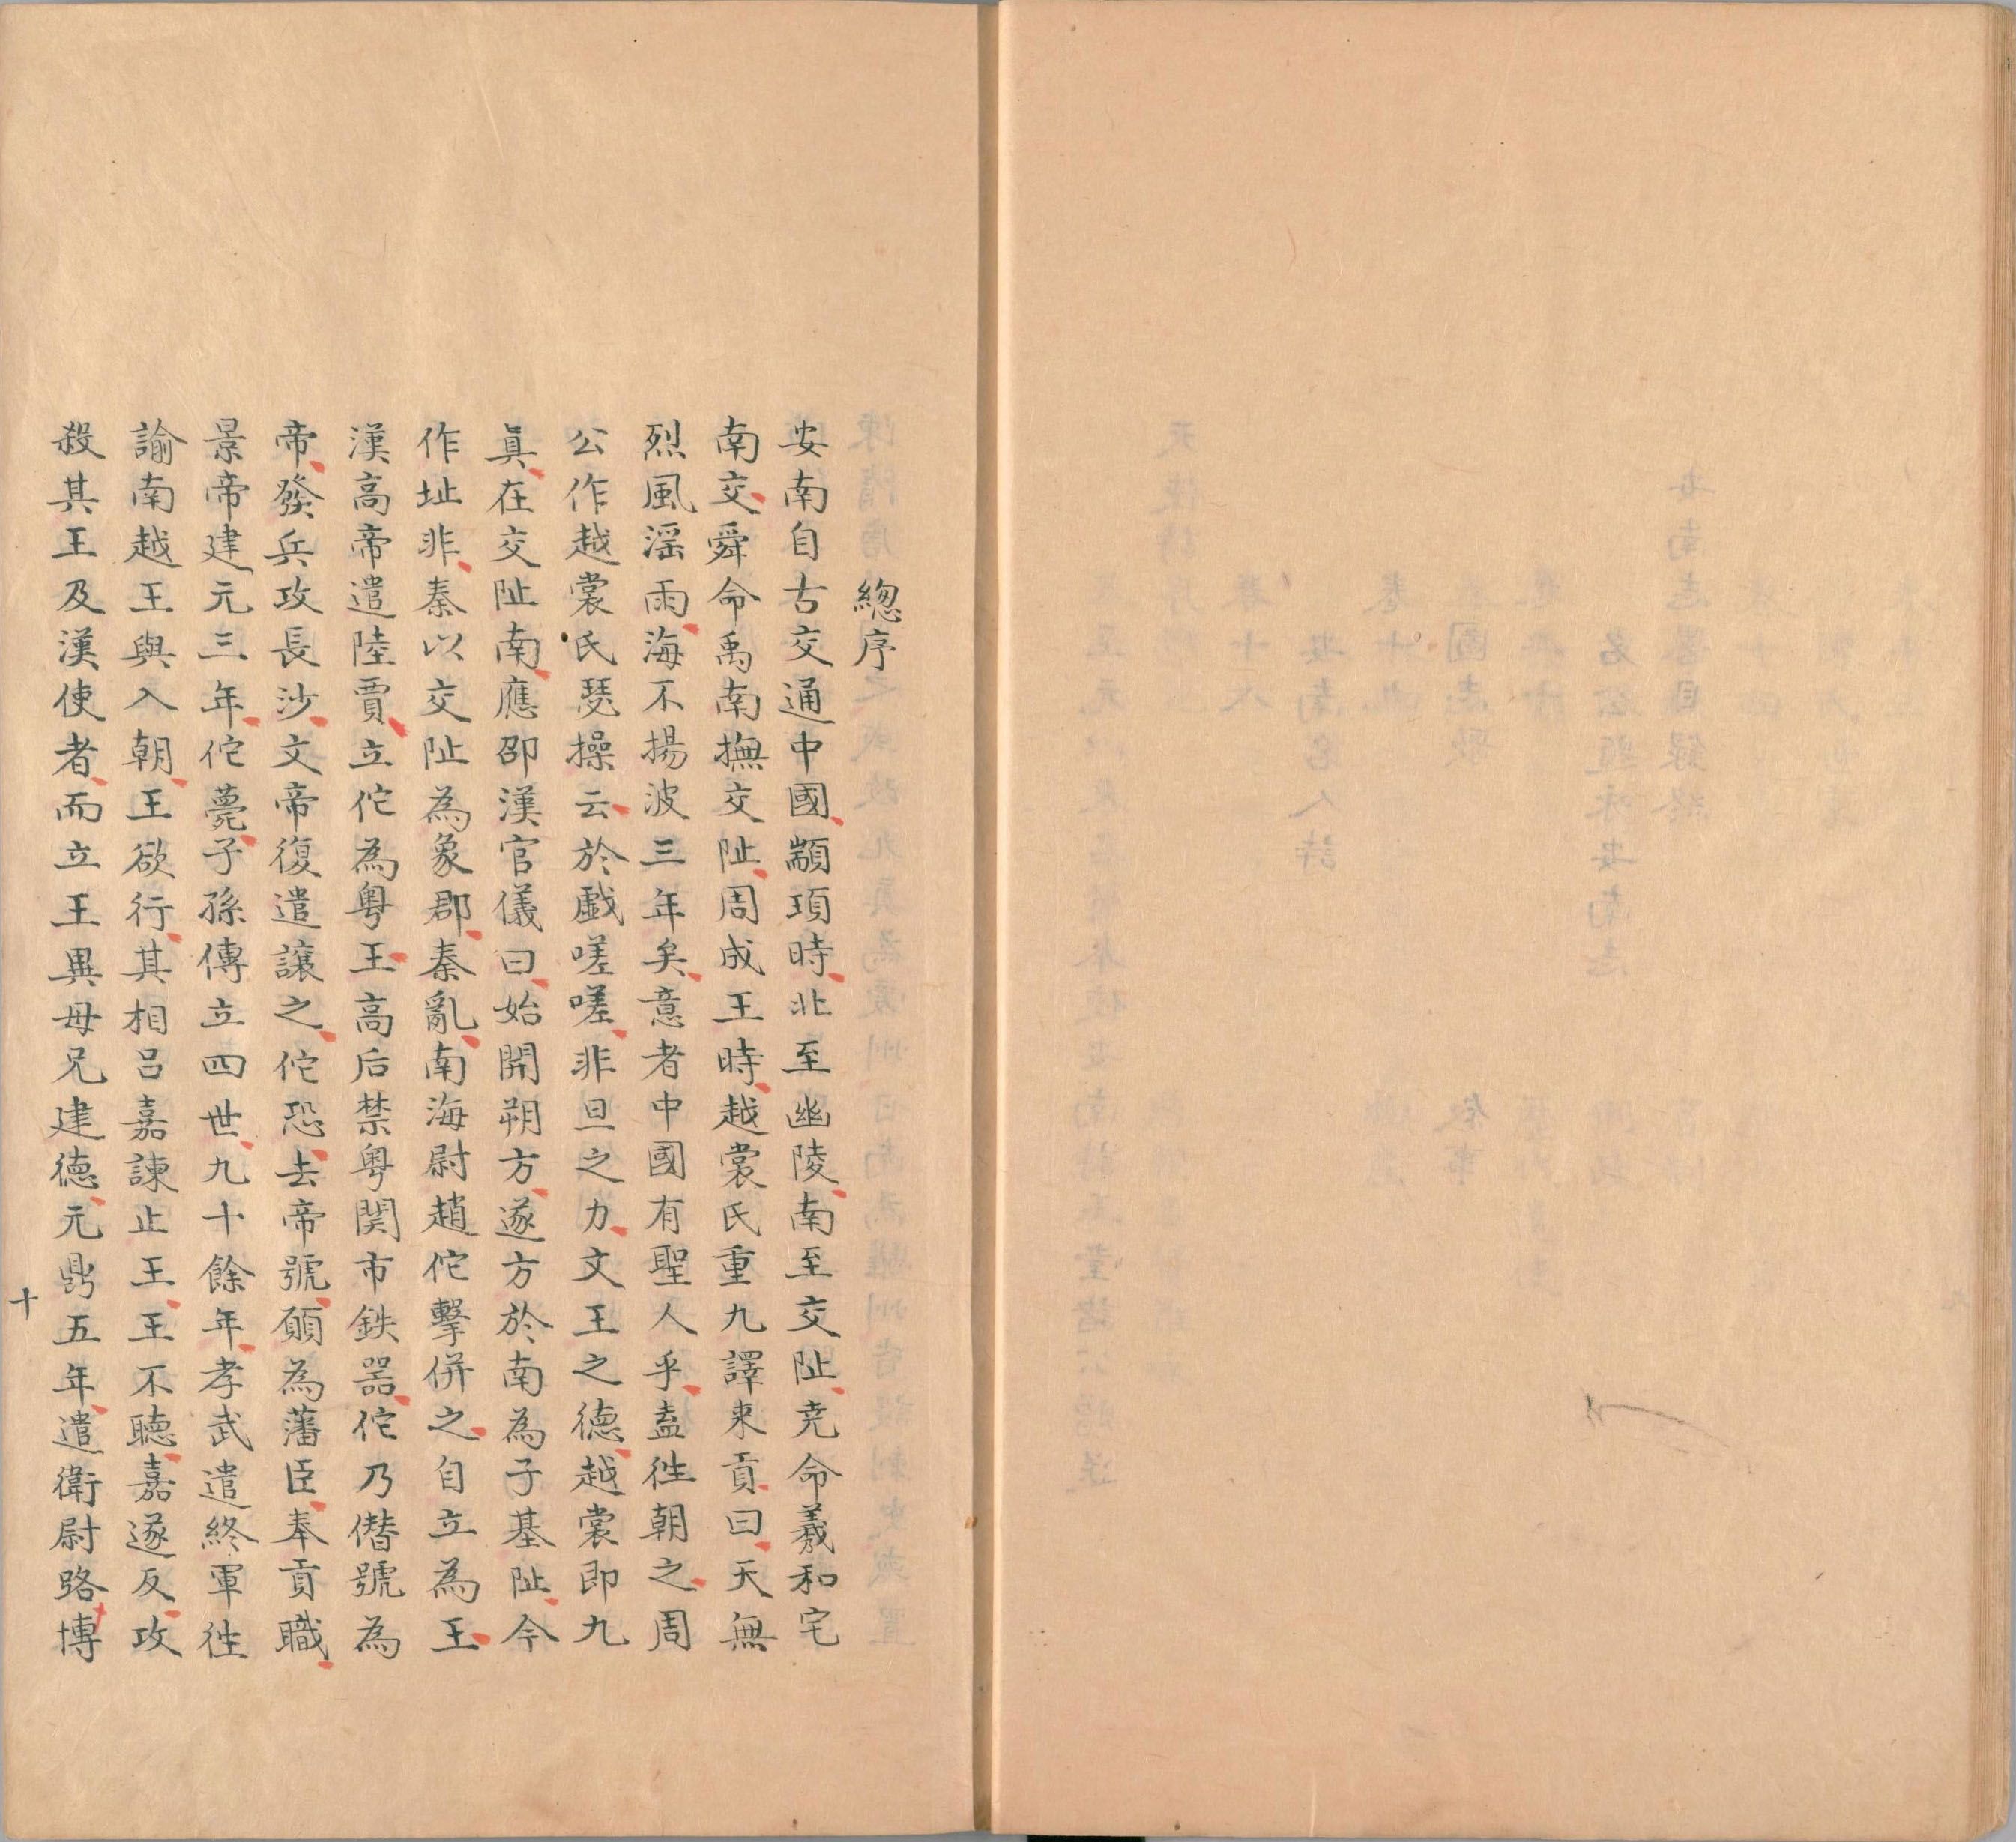 總序
安南自古交通中國、顓頊時、北至幽陵、南至交阯、尭命羲和宅
南交、舜命禹南撫交阯、周成王時、越裳氏重九譯来貢、曰、天無
烈風滛雨、海不揚波三年矣、意者中國有聖人乎、盍徃朝之、周
公作越裳氏瑟操云、於戯嗟嗟、非旦之力、文王之德、越裳即九
眞、在交阯南、應邵漢官儀曰、始開朔方、遂方於南為子基阯、今
作址非、秦以交阯為象郡、秦亂、南海尉趙佗擊併之、自立為王、
漢高帝遣陸賈、立佗為粤王、高后禁粤関市鉄器、佗乃僭號為
帝、發兵攻長沙、文帝復遣讓之、佗恐、去帝號、願為藩臣、奉貢職、
景帝建元三年、佗薨、子孫傳立四世、九十餘年、孝武遣終軍徃
諭南越王與入朝、王欲行、其相呂嘉諫止王、王不聴、嘉遂反、攻
殺其王及漢使者、而立王異母兄建德、元鼎五年、遣衛尉路博
十